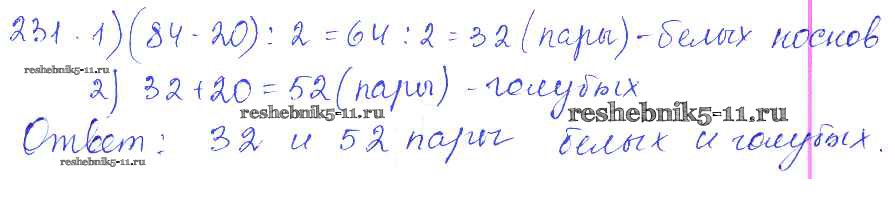 231. 1) (84 - 20) : 2 = 64 : 2 = 32 (пары) - белых носков
reshebnik5-11.ru
2) 32 + 20 = 52 (пары) - голубых
reshebnik5-11.ru reshebnik5-11.ru
Ответ: 32 и 52 пары белых и голубых.
reshebnik5-11.ru